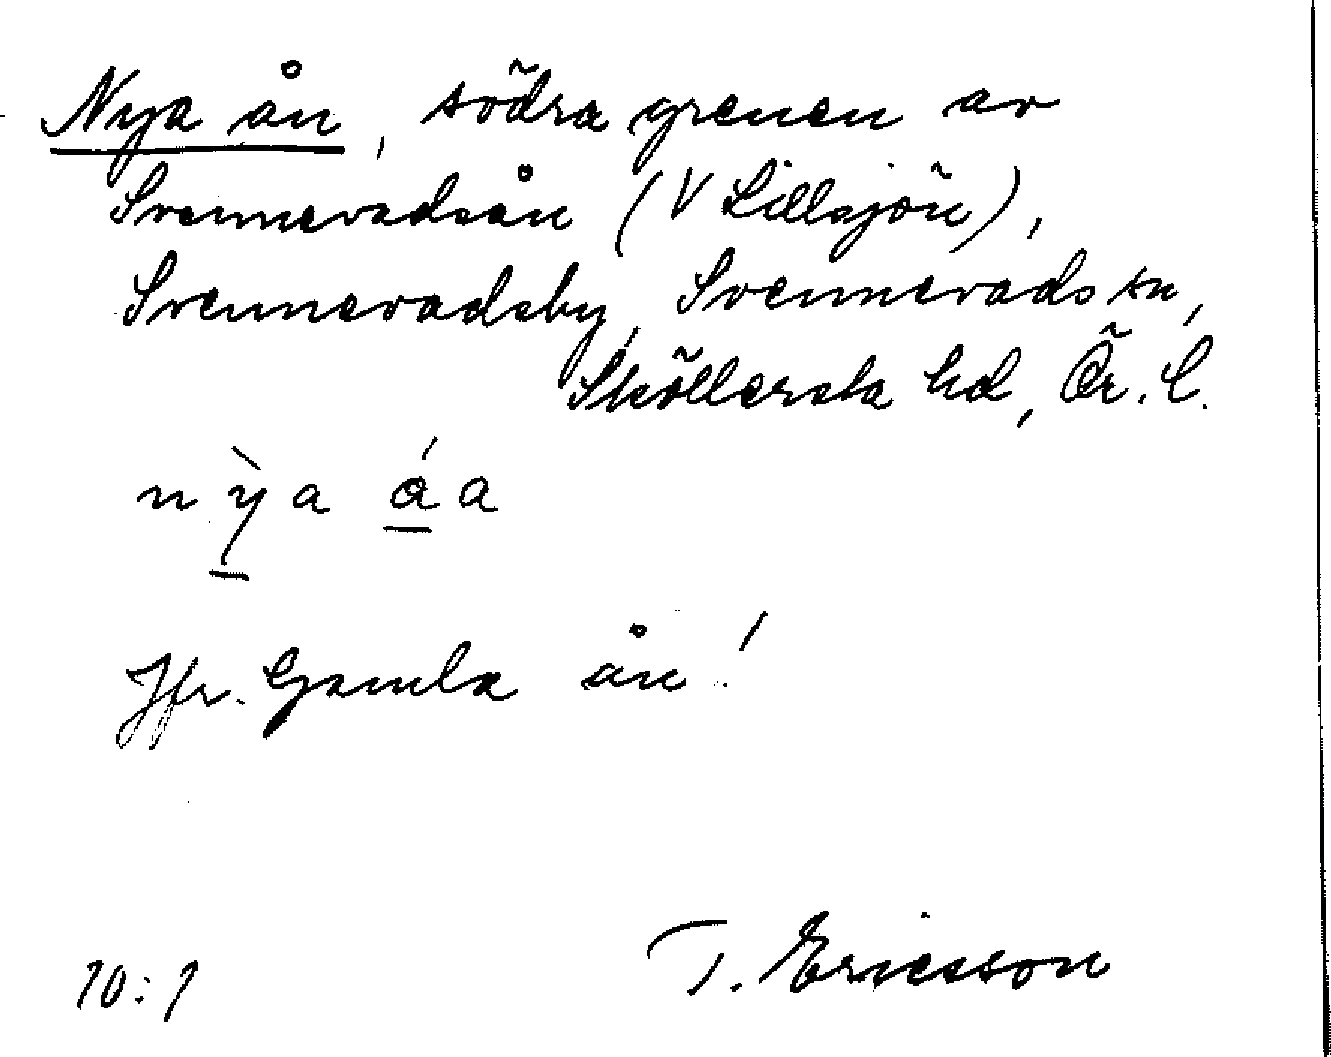 Nya ån, södra grenen av
Svennevadsån (V Lillsjön),
Svennevadsby, Svennevads sn,
Sköllersta hd, Ör. l.
n ỳ̱ a ǻ̱ a
Jfr. Gamla ån!
T. Ericsson
10:1